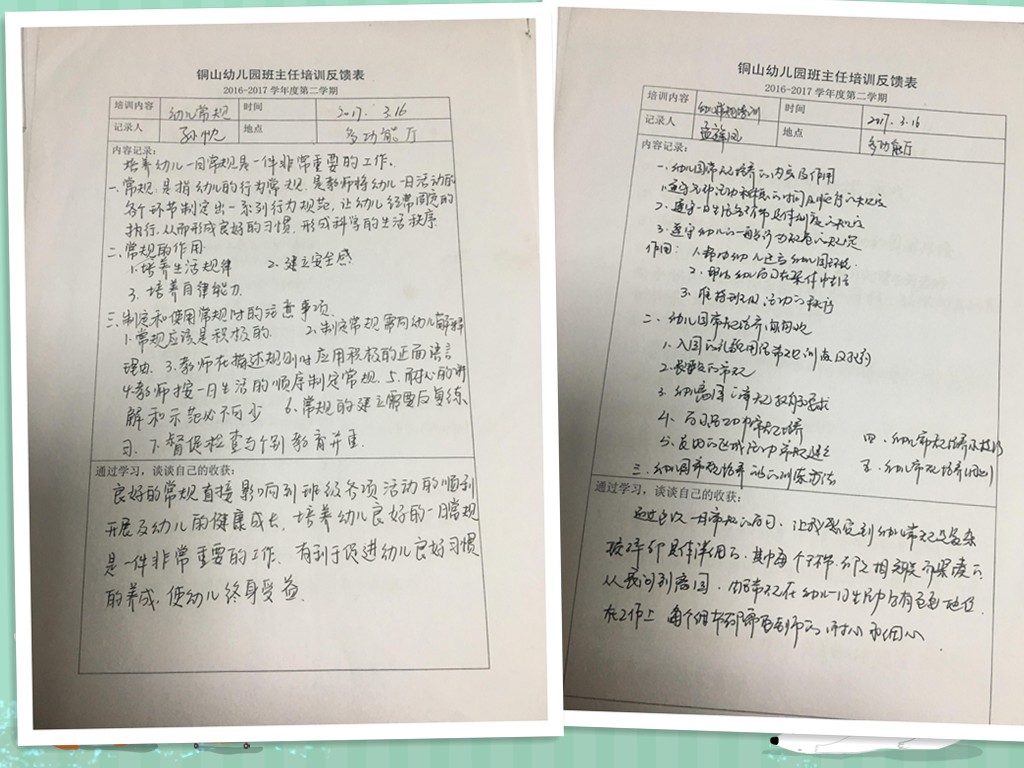 铜山幼儿园班主任培训反馈表
2016-2017 学年度第二学期
培训内容 幼儿常规 时间 2017.3.16
记录人 孙忱 地点 多功能厅
内容记录:
培养幼儿一日常规是一件非常重要的工作.
一.常规:是指幼儿的行为常规.是教师将幼儿一日活动的
各个环节制定出一系列行为规范,让幼儿经常固定的
执行.从而形成良好的习惯.形成科学的生活秩序.
二.常规的作用.
1.培养生活规律 2.建立安全感
3.培养自律能力.
三.制定和使用常规时的注意事项.
1.常规应该是积极的. 2.制定常规需向幼儿解释
理由. 3.教师在描述规则时应用积极的正面语言
4.教师按一日生活的顺序制定常规. 5.耐心的讲
解和示范必不可少 6.常规的建立需要反复练
习. 7.督促检查与个别教育并重.
通过学习,谈谈自己的收获:
良好的常规直接影响到班级各项活动的顺利
开展及幼儿的健康成长.培养幼儿良好的一日常规
是一件非常重要的工作.有利于促进幼儿良好习惯
的养成.使幼儿终身受益.
铜山幼儿园班主任培训反馈表
2016-2017 学年度第二学期
培训内容 时间 2017.3.16
记录人 地点 多功能厅
内容记录:
一.幼儿园常规培养的内容及作用
2.遵守一日生活各环节具体制度的规定
3.遵守幼儿的一般行为规范的规定
作用:1.帮助幼儿适应幼儿园环境.
2.帮助幼儿学习在集体中生活
3.维持班级活动的秩序
二.幼儿园常规培养
1.入园的礼貌
2.
3.幼儿离园的常规
4.常规培养
5.活动中常规建立
三.幼儿园常规培养的训练方法
四.幼儿常规培养
五.幼儿常规培养
通过学习,谈谈自己的收获:
通过这次一日常规的学习,让我感受到幼儿常规是复杂
琐碎却具体详细的.其中每个环节
从来园到离园.常规在幼儿一日生活中占有重要地位.
在工作上每个细节都需要老师的耐心和细心